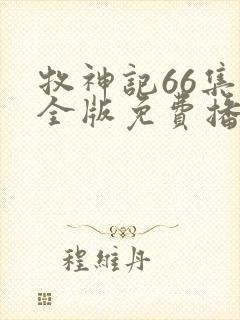 牧神記66集
全版免費播
程維丹